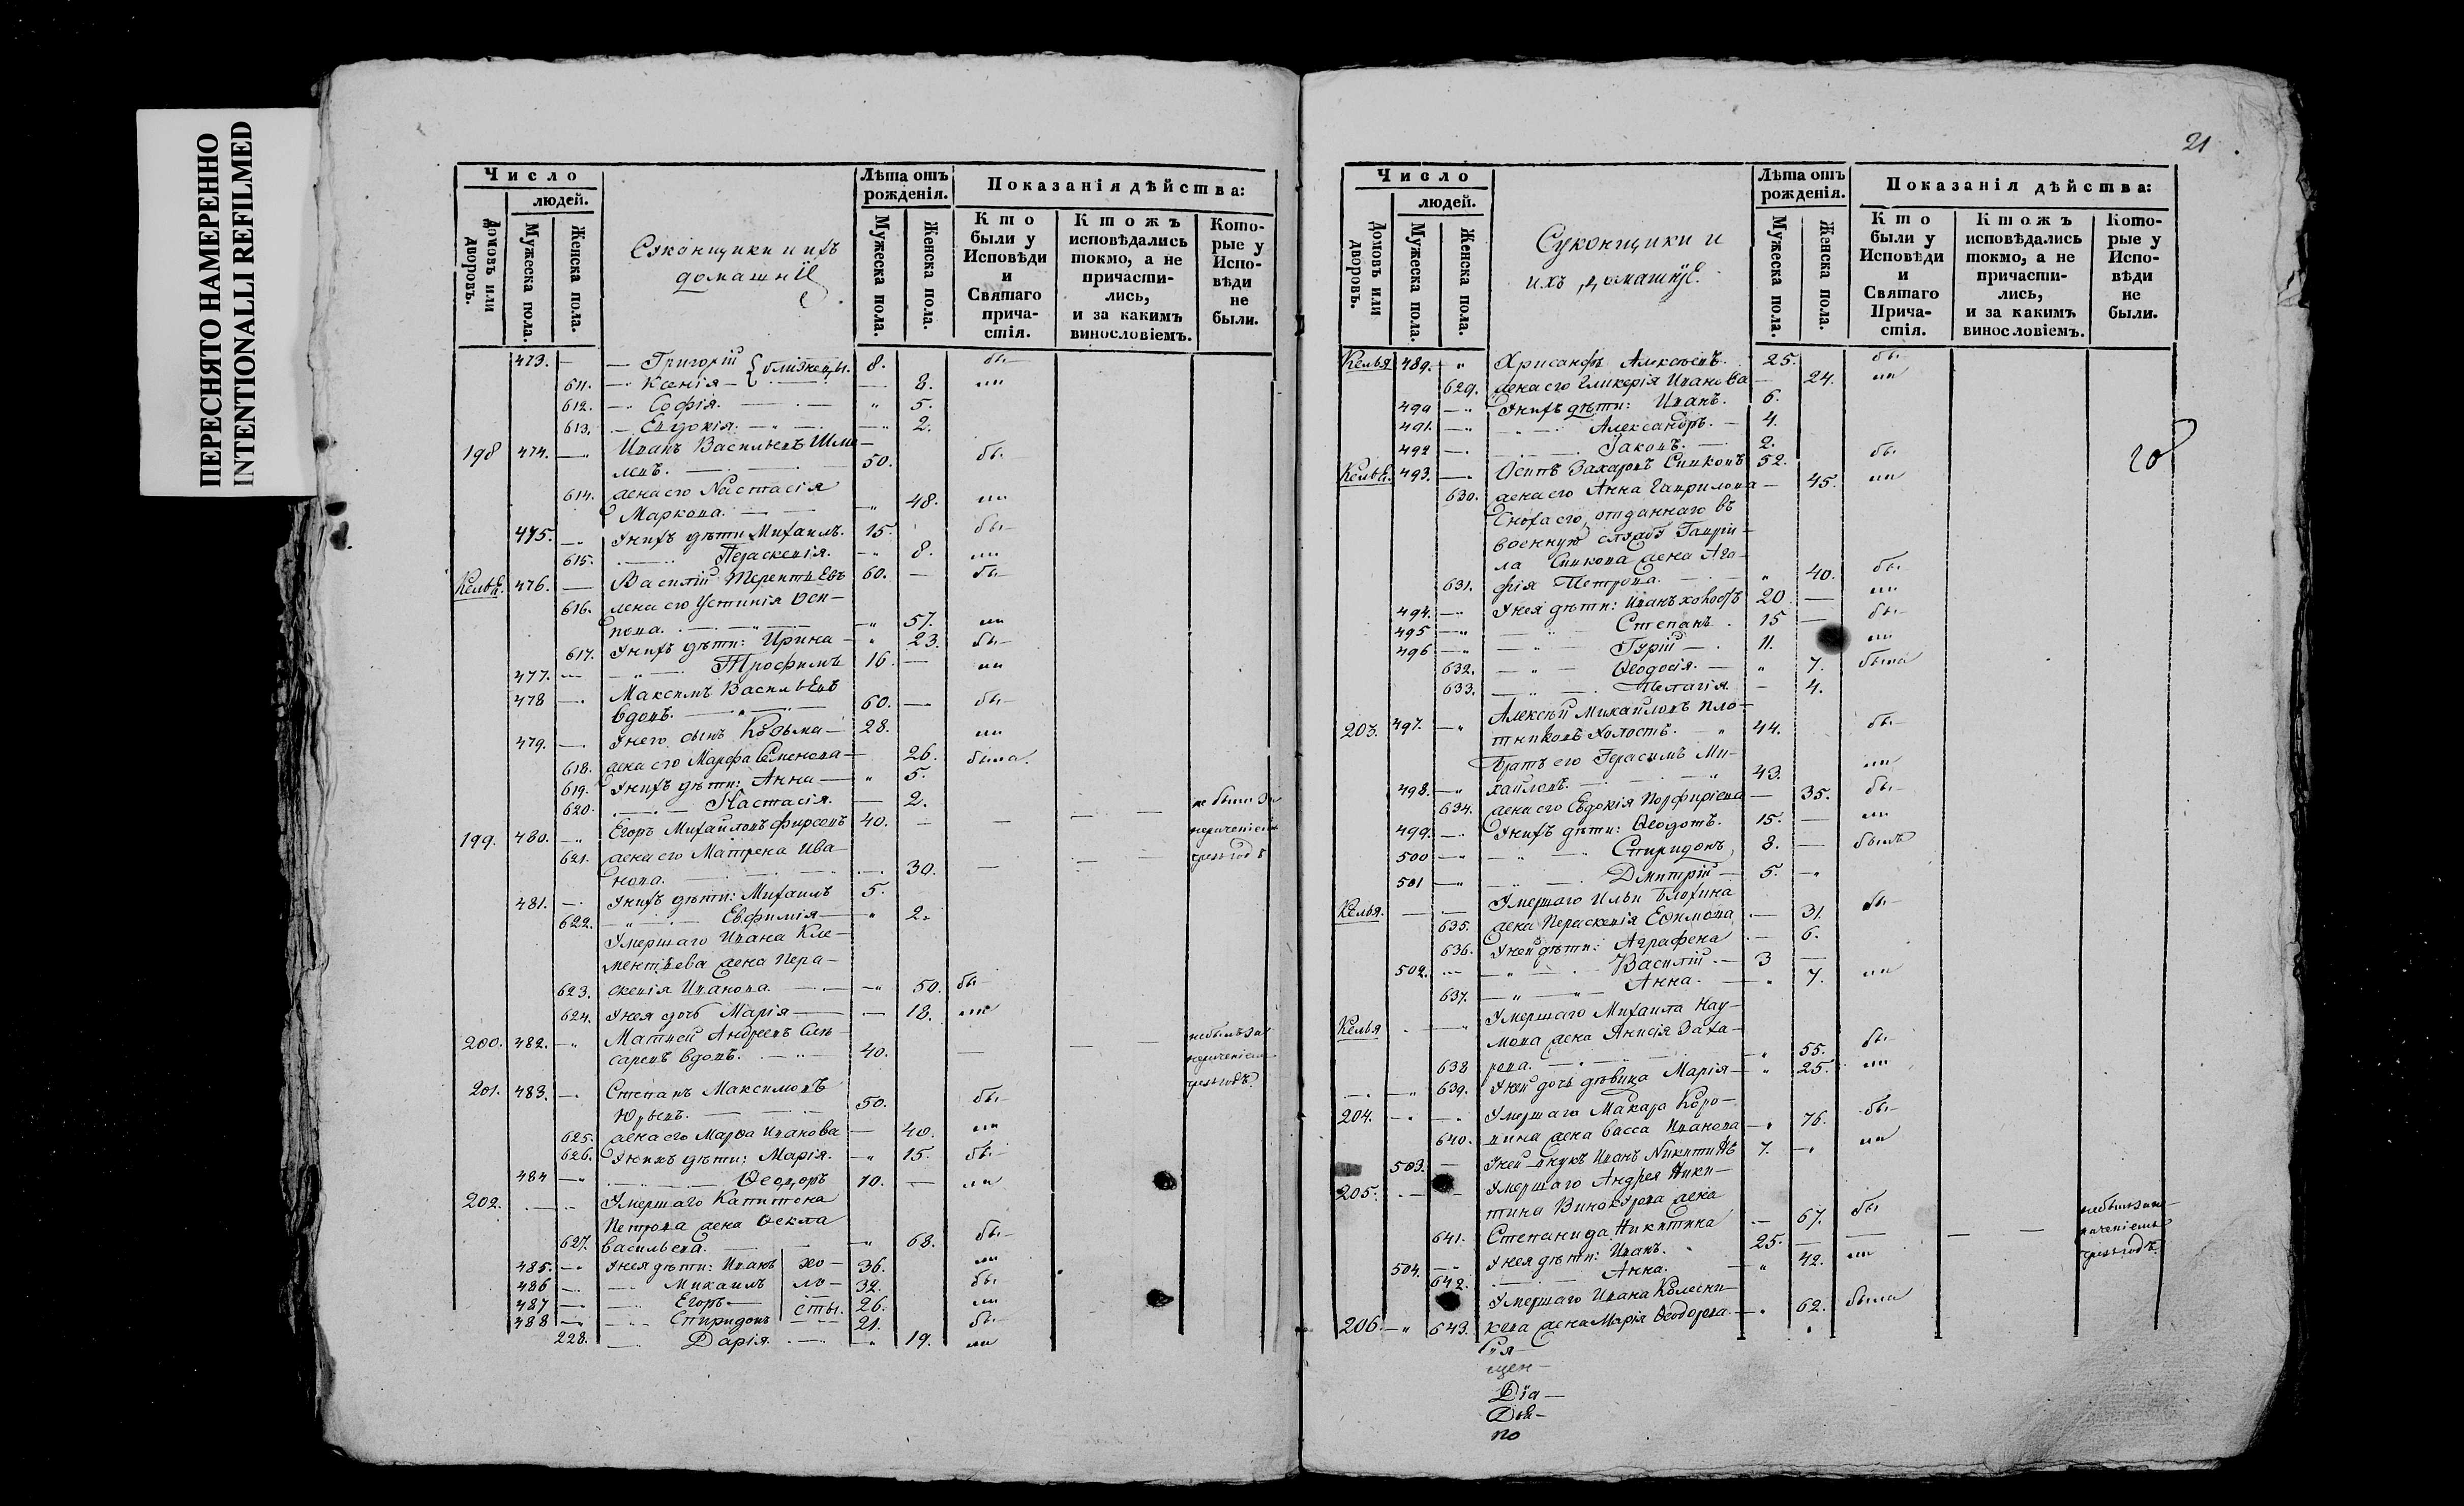 ПЕРЕСНЯТО НАМЕРЕННО
INTENTIONALLI REFILMED
Число
людей.
Домовъ или дворовъ.
Мужеска пола.
Женска пола.
Суконщики и ихъ
домашніе
Лѣта отъ рожденія.
Мужеска пола.
Женска пола.
Показанія дѣйства:
Кто были у Исповѣди и Святаго причастія.
Ктожъ исповѣдались токмо, а не причастились, и за какимъ винословіемъ.
Которые у Исповѣди не были.
473. — Григорій } близнецы. 8. бы—
611. — Ксенія — 8. ли
612. — Софія. 5.
613. — Евдокія. 2.
198 474. Иванъ Васильевъ
левъ. 50. бы—
614. жена его Настасія
Маркова. 48. ли
475. У нихъ дѣти Михаилъ. 15. бы—
615. Параскевія. 8. ли
Келья. 476. Василій Терентьевъ 60. бы—
616. жена его Устинія Оси—
пова. 57. ли
617. У нихъ дѣти: Ирина 23. бы—
477. Трофимъ 16. ли
478 Максимъ Васильевъ
вдовъ. 60. бы—
479. У него сынъ Козьма 28. ли
618. жена его Марфа Семенова 26. была.
619. У нихъ дѣти: Анна 5.
620. Настасія. 2.
199. 480. Егоръ Михайловъ Фирсовъ 40. не были за
621. жена его Матрена Ива— нерачениемъ
нова. 30.
481. У нихъ дѣти: Михаилъ 5.
622. Евфимія 2.
Умершаго Ивана Кле—
ментьева жена Пара—
623. скевія Иванова. 50. бы—
624. У нея дочь Марія 18. ли
200. 482. Матвей Андреевъ Слю— не былъ за
саревъ вдовъ. 40. нерачениемъ
201. 483. Степанъ Максимовъ
Юрьевъ. 50. бы—
625. жена его Марѳа Иванова 40. ли
626. У нихъ дѣти: Марія. 15. бы—
484 Ѳеодоръ 10. ли
202. Умершаго Капитона
Петрова жена Ѳекла
627. Васильева. 68. бы—
485. У нея дѣти: Иванъ хо— 36. ли
486 Михаилъ ло— 32. бы
487 Егоръ сты. 26. ли
488 Спиридонъ 21. бы—
228. Дарія. 19. ли
21
Число
людей.
Домовъ или дворовъ.
Мужеска пола.
Женска пола.
Суконщики и
ихъ домашніе.
Лѣта отъ рожденія.
Мужеска пола.
Женска пола.
Показанія дѣйства:
Кто были у Исповѣди и Святаго Причастія.
Ктожъ исповѣдались токмо, а не причастились, и за какимъ винословіемъ.
Которые у Исповѣди не были.
Келья 489. Хрисанфъ Алексѣевъ. 25. бы
629. жена его Гликерія Иванова 24. ли
490 У нихъ дѣти: Иванъ. 6.
491. Александръ. 4.
492 Іаковъ. 2.
Келья. 493. Осипъ Захаровъ 52. бы
630. жена его Анна Гаврилова 45. ли
Сноха его, отданнаго въ
военную службу Гаври—
ла жена Ага—
631. фія Петрова. 40. бы
494. У нея дѣти: Иванъ холостъ 20 ли
495 Степанъ. 15 бы
496 Гурій 11. ли
632. Ѳеодосія. 7. была
633. Пелагія. 4.
203. 497. Алексѣй Михайловъ Пло—
тниковъ холостъ. 44. бы
Братъ его Герасимъ Ми—
498. хайловъ. 43. ли
634. жена его Евдокія Порфиріева 35. бы
499. У нихъ дѣти: Ѳеодотъ. 15. ли
500 Спиридонъ, 8. былъ
501 Дмитрій 5.
Умершаго Ильи Блохина
Келья. 635. жена Параскевія Ефимова 31. бы
636. У ней дѣти: Аграфена 6.
502. Василій. 3
637. Анна. 7. ли
Умершаго Михаила Нау—
Келья мова жена Анисія Заха—
638 рова. 55. бы
639. У ней дочь дѣвица Марія 25. ли
204. Умершаго Макара Коро—
640. вина жена Васса Иванова 76. бы
503. У ней внукъ Иванъ Никитинъ 7. ли
205. Умершаго Андрея Ники—
тина Винокурова жена
641. Степанида Никитина 67. бы
504. У нея дѣти: Иванъ. 25. не былъ за не—
рачениемъ
642. Анна. 42. ли
Умершаго Ивана Колесни—
206. 643. кова жена Марія Ѳеодорова. 62. была
щен—
Діа—
по